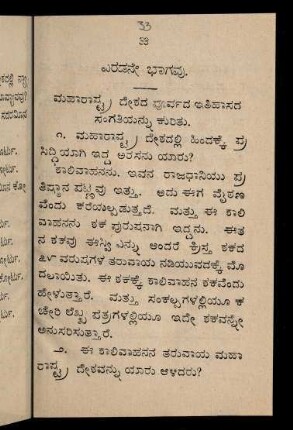 33
೫೫
ಎರಡನೇ ಭಾಗವು.
ಮಹಾರಾಷ್ಟ್ರ ದೇಶದ ಪೂರ್ವದ ಇತಿಹಾಸದ
ಸಂಗತಿಯನ್ನು ಕುರಿತು.
೧. ಮಹಾರಾಷ್ಟ್ರ ದೇಶದಲ್ಲಿ ಹಿಂದಕ್ಕೆ ಪ್ರ
ಸಿದ್ಧಿಯಾಗಿ ಇದ್ದ ಅರಸನು ಯಾರು?
ಶಾಲಿವಾಹನನು. ಇವನ ರಾಜಧಾನಿಯು ಪ್ರ
ತಿಷ್ಠಾನ ಪಟ್ಟಣವು ಇತ್ತು. ಅದು ಈಗ ಪೈಠಣ
ವೆಂದು ಕರೆಯಲ್ಪಡುತ್ತದೆ. ಮತ್ತು ಈ ಶಾಲಿ
ವಾಹನನು ಶಕ ಪುರುಷನಾಗಿ ಇದ್ದನು. ಈತ
ನ ಶಕವು ಈಸ್ವಿ ಎನ್ನು ಅಂದರೆ ಕ್ರಿಸ್ತ ಶಕದ
೭೮ ವರುಷಗಳ ತರುವಾಯ ನಡಿಯುವದಕ್ಕೆ ಮೊ
ದಲಾಯಿತು. ಈ ಶಕಕ್ಕೆ ಶಾಲಿವಾಹನ ಶಕವೆಂದು
ಹೇಳುತ್ತಾರೆ. ಮತ್ತು ಸಂಕಲ್ಪಗಳಲ್ಲಿಯೂ ಕ
ಚೇರಿ ಲೆಖ್ಖ ಪತ್ರಗಳಲ್ಲಿಯೂ ಇದೇ ಶಕವನ್ನೇ
ಅನುಸರಿಸುತ್ತಾರೆ.
೨. ಈ ಶಾಲಿವಾಹನನ ತರುವಾಯ ಮಹಾ
ರಾಷ್ಟ್ರ ದೇಶವನ್ನು ಯಾರು ಆಳಿದರು?